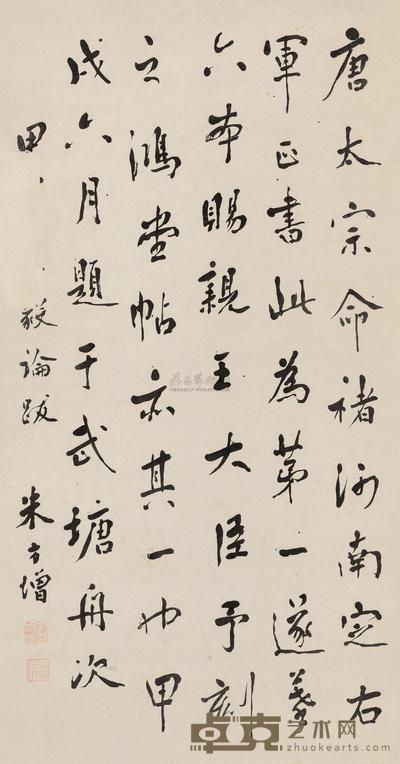 唐太宗命褚河南定右
軍正書此為第一遂摹
六本賜親王大臣予刻
之鴻堂帖亦其一也甲
戌六月題于武塘舟次
甲
毅論跋 朱方增
卓克艺术网
zhuokearts.com